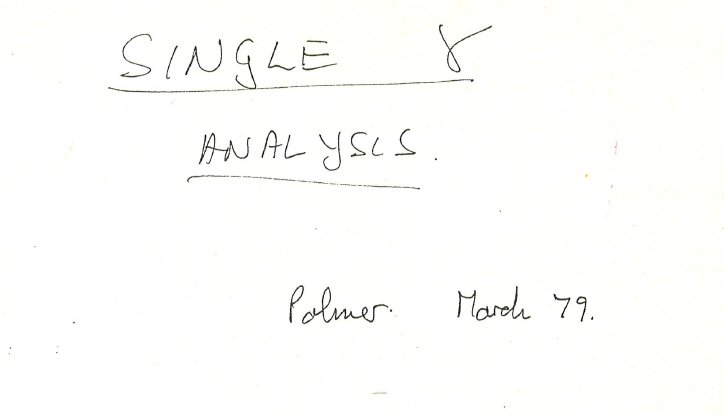 SINGLE γ
ANALYSIS.
Palmer. March 79.